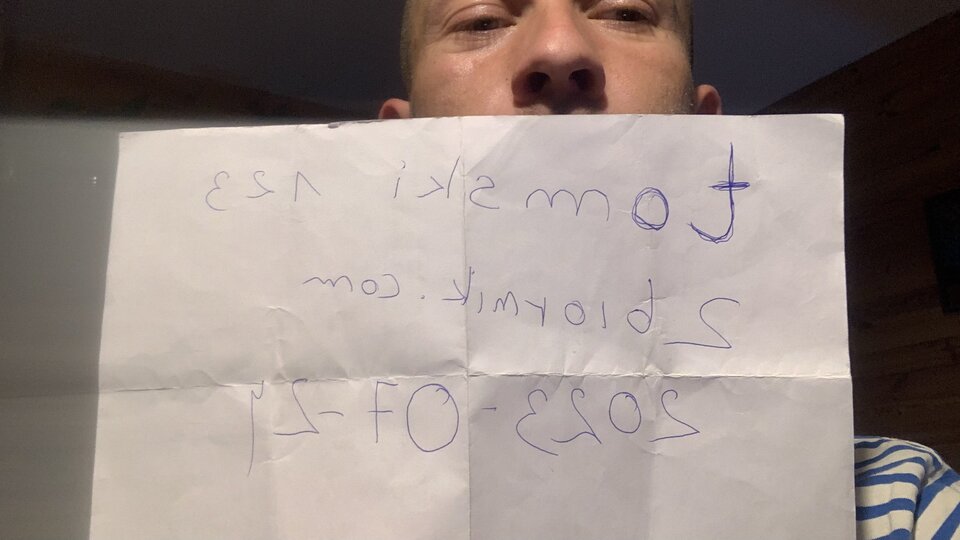 tomski 123
zbiornik.com
2023-07-21